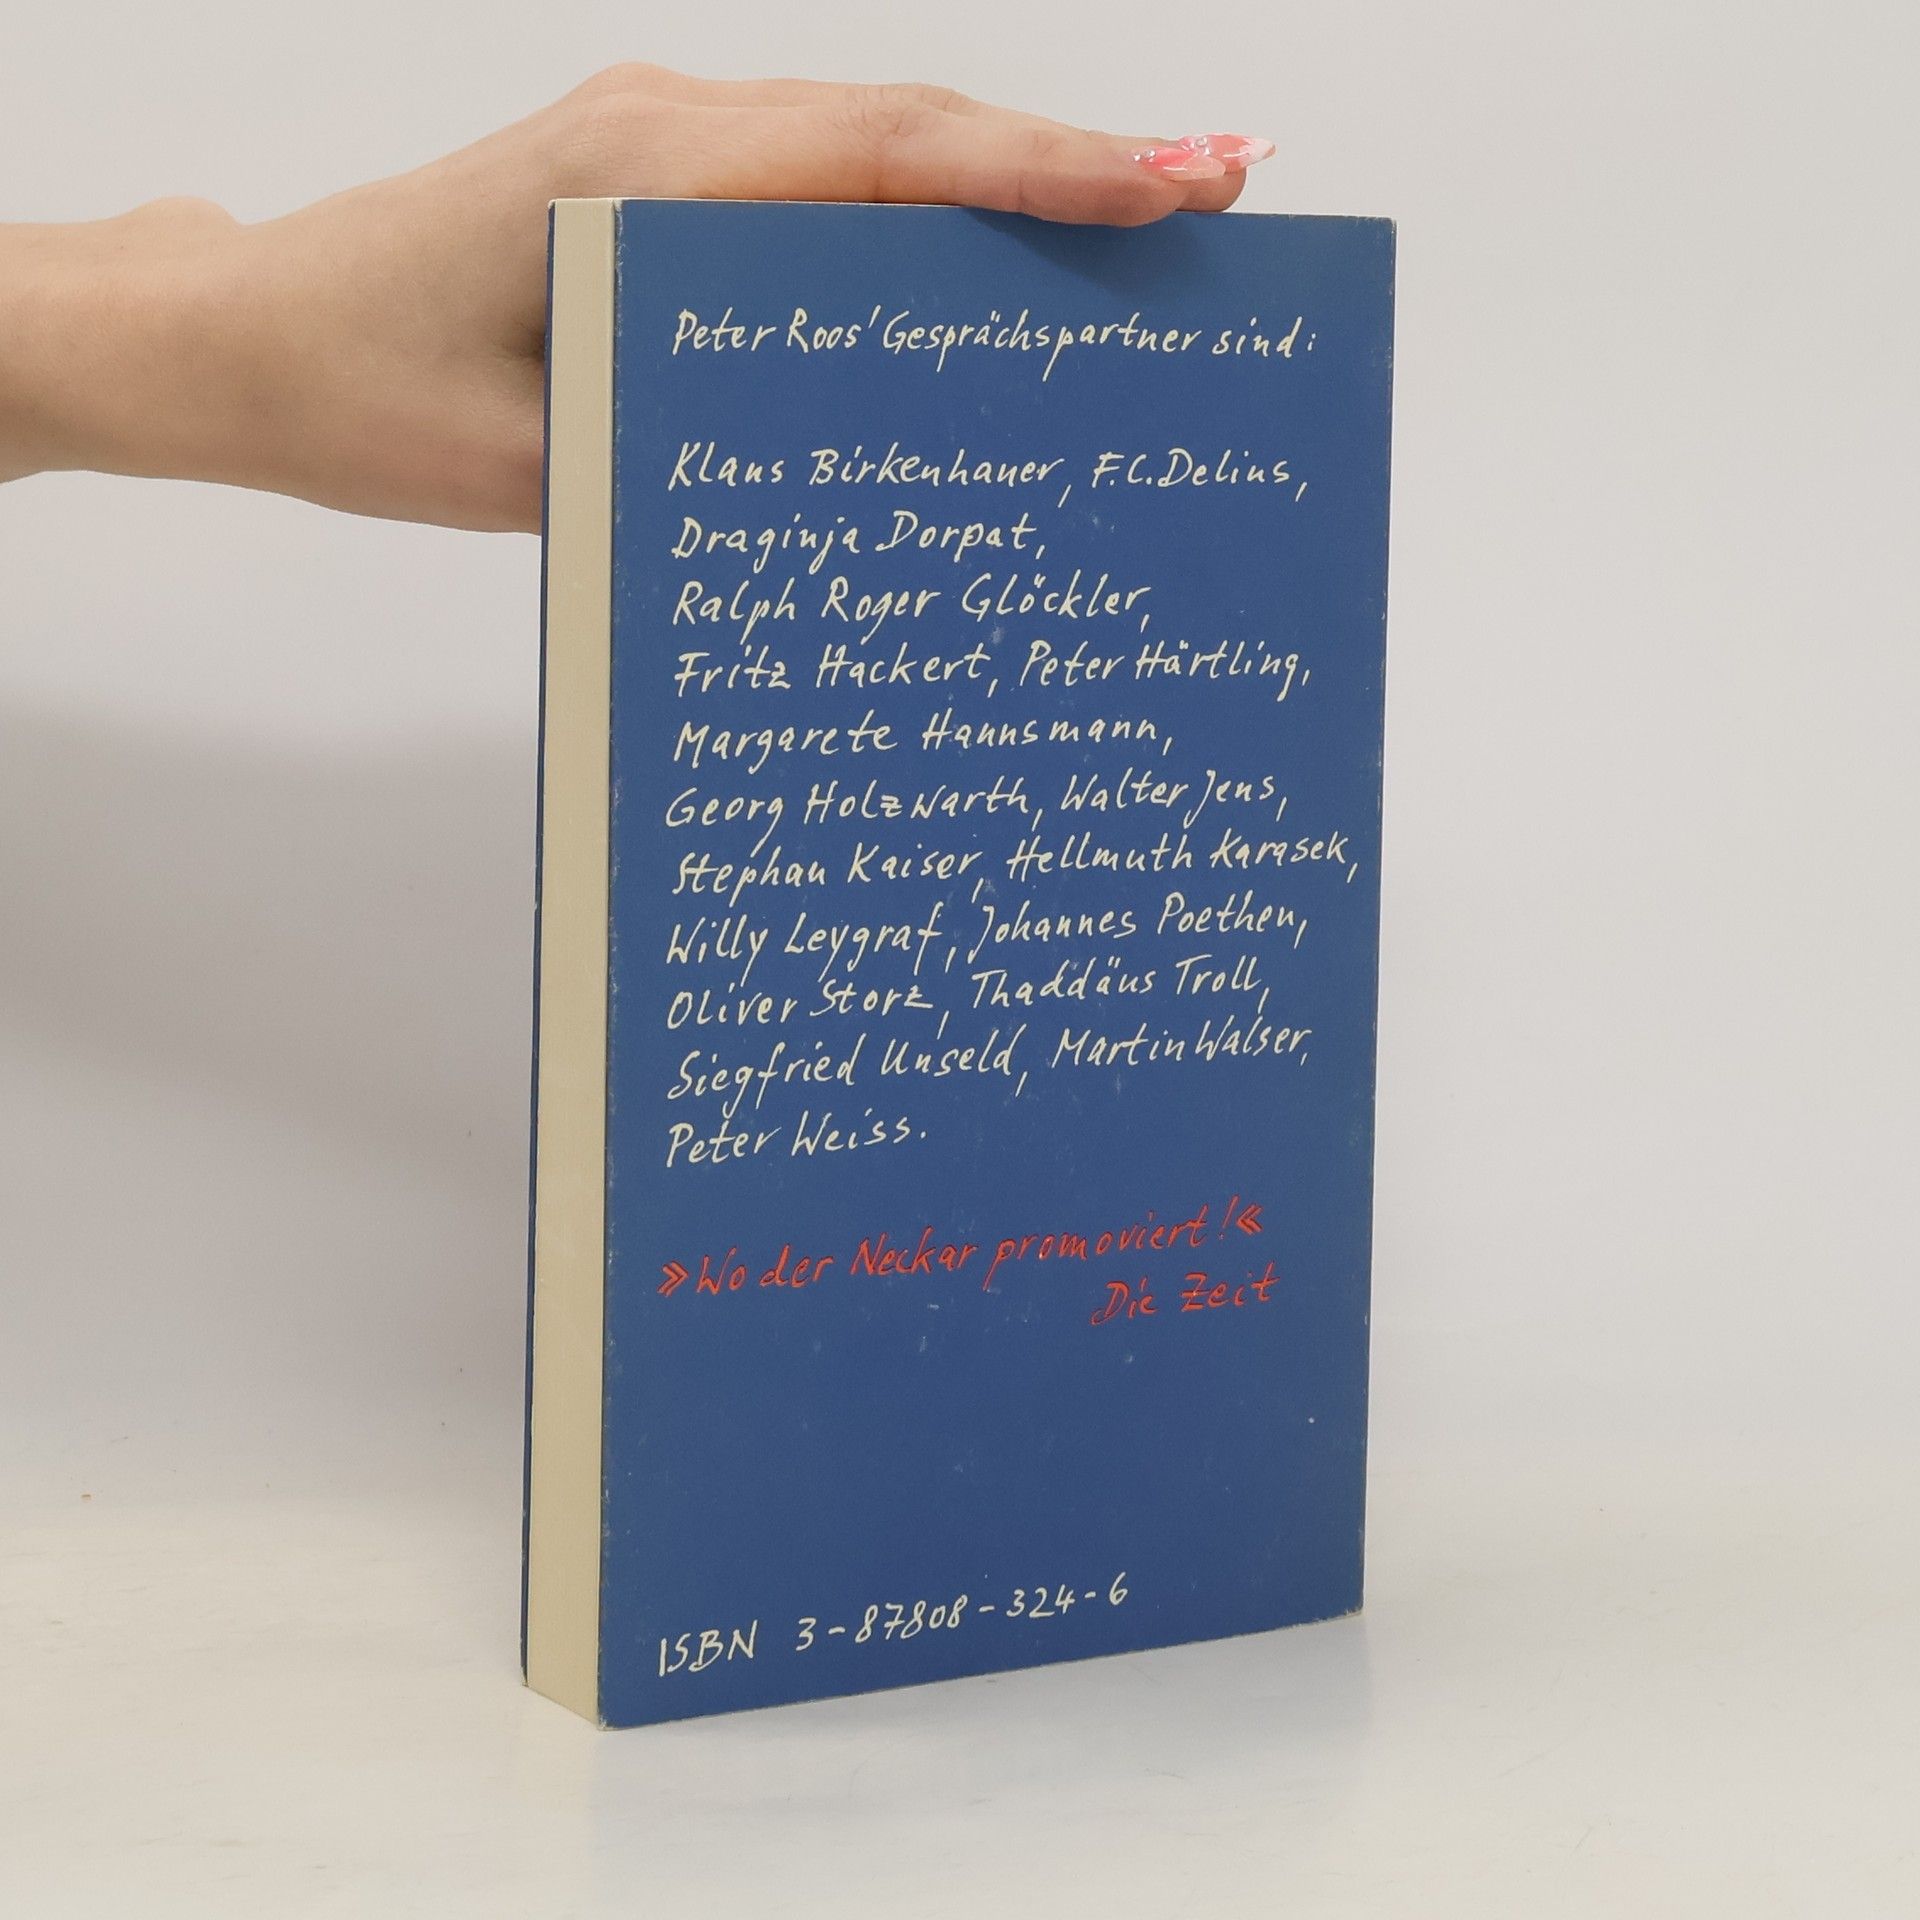 Peter Roos' Gesprächspartner sind:
Klaus Birkenhauer, F.C. Delius,
Draginja Dorpat,
Ralph Roger Glöckler,
Fritz Hackert, Peter Härtling,
Margarete Hannsmann,
Georg Holzwarth, Walter Jens,
Stephan Kaiser, Hellmuth Karasek,
Willy Leygraf, Johannes Poethen,
Oliver Storz, Thaddäus Troll,
Siegfried Unseld, Martin Walser,
Peter Weiss.
»Wo der Neckar promoviert!«
Die Zeit
ISBN 3-87808-324-6